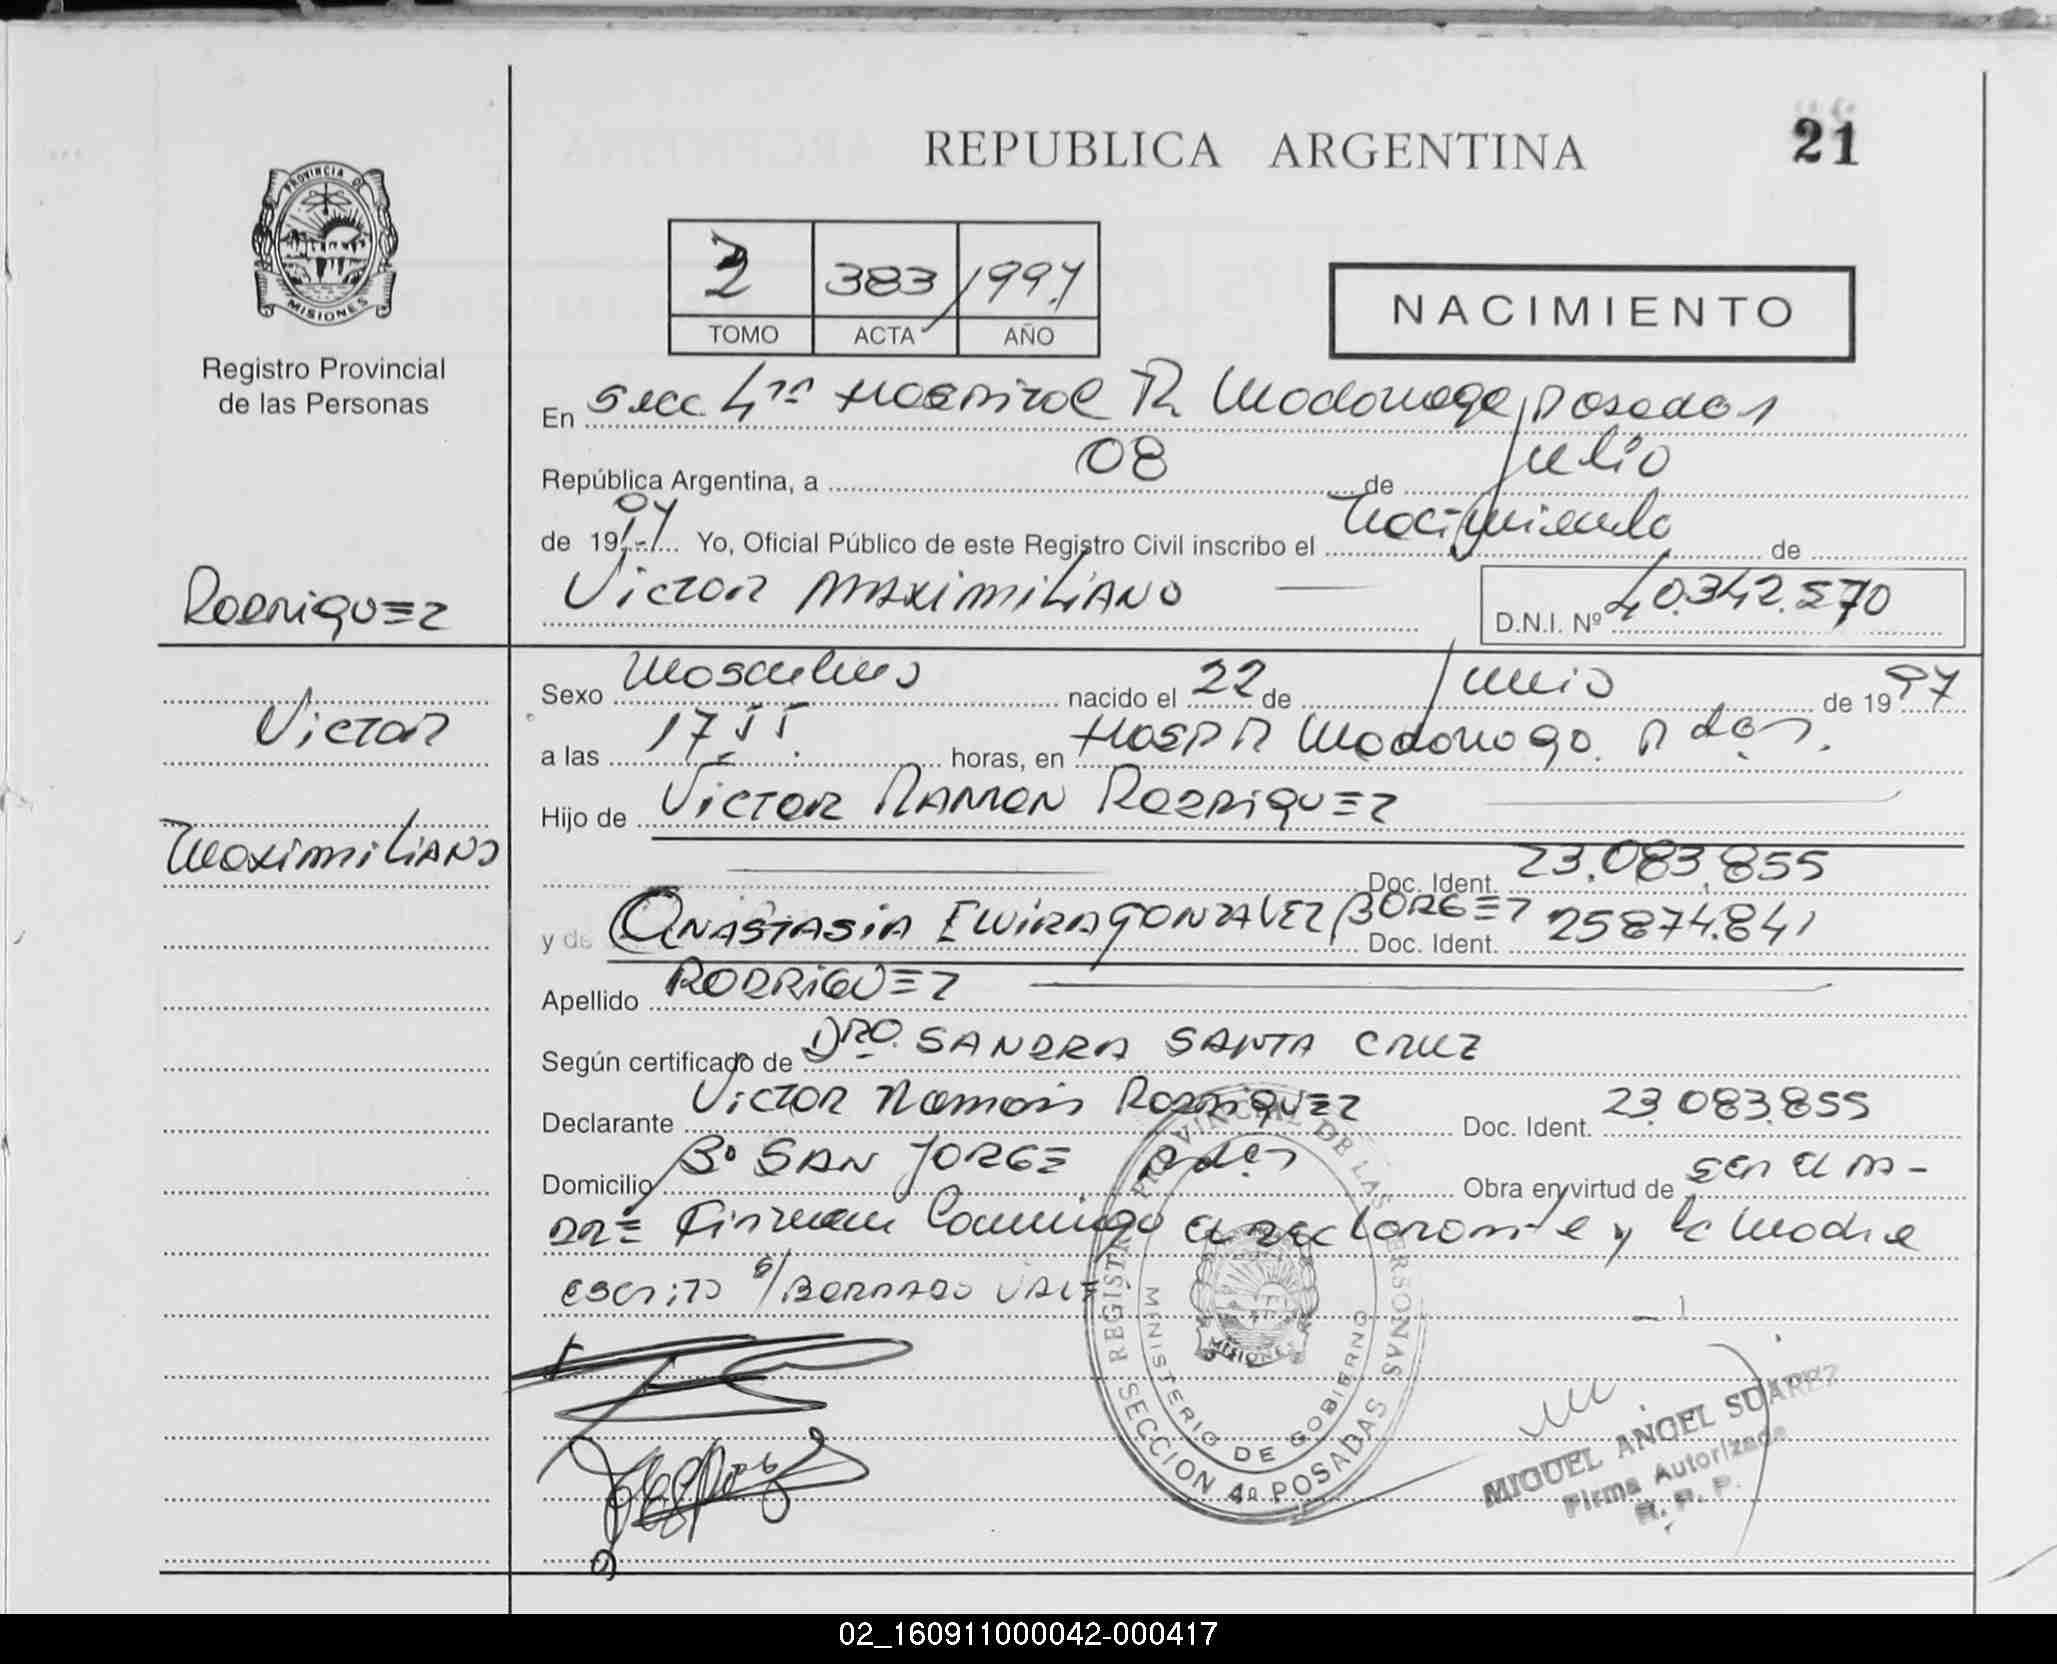 REPUBLICA ARGENTINA
21
PROVINCIA DE
MISIONES
Registro Provincial
de las Personas
2 383 1997
TOMO ACTA AÑO
NACIMIENTO
En Secc 4ta Hospital R Madariaga Posadas
República Argentina, a 08 de Julio
de 1997 Yo, Oficial Público de este Registro Civil inscribo el Nacimiento de
Victor Maximiliano D.N.I. Nº 40.342.570
Rodriguez
Victor
Maximiliano
Sexo Masculino nacido el 22 de Junio de 1997
a las 17 55 horas, en Hosp R Madariaga. Pdas.
Hijo de VICTOR RAMON RODRIGUEZ
Doc. Ident. 23.083.855
y de ANASTASIA ELVIRA GONZALEZ BORGEZ Doc. Ident. 25874.841
Apellido RODRIGUEZ
Según certificado de Dra. SANDRA SANTA CRUZ
Declarante Victor Ramon Rodriguez Doc. Ident. 23.083.855
Domicilio Bº SAN JORGE Pdas Obra en virtud de ser el pa-
dre Firman Conmigo el declarante y la Madre
escrito s/ BORRADO VALE
REGISTRO PROVINCIAL DE LAS PERSONAS
MINISTERIO DE GOBIERNO
MISIONES
SECCION 4a POSADAS
MIGUEL ANGEL SUAREZ
Firma Autorizada
R. P. P.
02_160911000042-000417